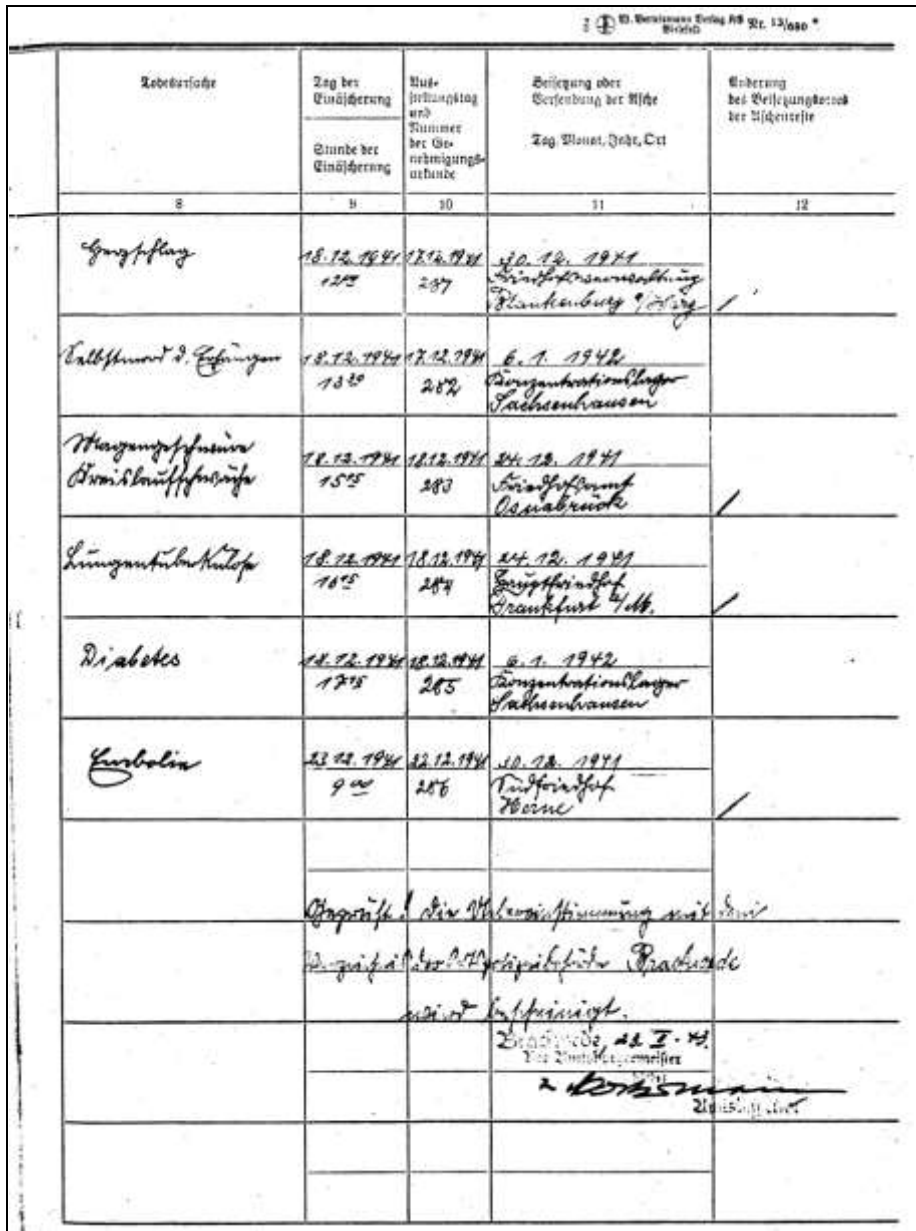 W. Bertelsmann Verlag KG Bielefeld Nr. 13/680 *
Todesursache
Tag der Einäscherung
Stunde der Einäscherung
Aus-
stellungstag
und
Nummer
der Ge-
nehmigungs-
urkunde
Beisetzung oder
Versendung der Asche
Tag, Monat, Jahr, Ort
Änderung
des Beisetzungsortes
der Aschenreste
8 9 10 11 12
Herzschlag
18.12.1941 17.12.1941 30.12.1941
Friedhofsverwaltung
Blankenburg a/Harz
Selbstmord d. Erhängen
18.12.1941 17.12.1941 6.1.1942
13 30 282 Konzentrationslager
Sachsenhausen
Magengeschwüre
Kreislaufschwäche
18.12.1941 18.12.1941 24.12.1941
15 15 283 Friedhofsamt
Osnabrück
Lungentuberkulose
18.12.1941 18.12.1941 24.12.1941
16 15 284 Hauptfriedhof
Frankfurt a/M.
Diabetes
18.12.1941 18.12.1941 6.1.1942
17 15 285 Konzentrationslager
Sachsenhausen
Embolie
23.12.1941 22.12.1941 30.12.1941
9 00 286 Südfriedhof
Herne
Geprüft! Die Übereinstimmung mit dem
der Brackwede
wird bescheinigt.
Brackwede,
Der Amtsbürgermeister